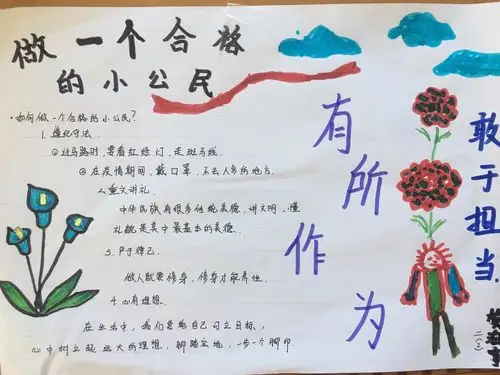 做一个合格
的小公民
·如何做一个合格的小公民?
1.遵纪守法.
①过马路时,要看红绿灯,走斑马线.
②在疫情期间,戴口罩,不去人多的地方.
2.重文讲礼.
中华民族有很多传统美德,讲文明、懂
礼貌是其中最基本的美德.
3.严于律己.
做人就要修身,修身才能养性.
4.心有理想.
在生活中,我们要给自己可立目标,
心中树立起远大的理想,脚踏实地,一步一个脚印.
有所作为
敢于担当
二(3)